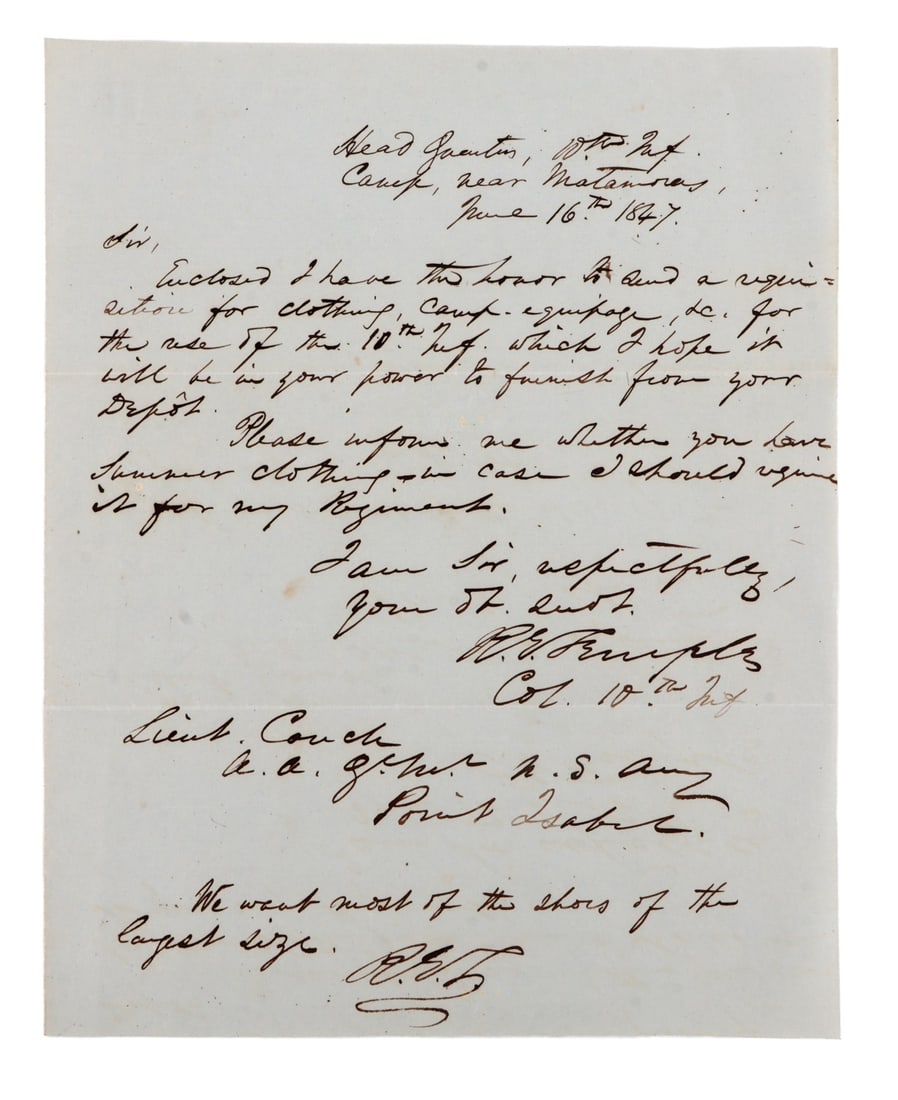 Head Quarters, 10th Inf.
Camp, near Matamoros,
June 16th 1847.
Sir,
Enclosed I have the honor to send a requi=
sition for clothing, camp-equipage, &c. for
the use of the 10th Inf. which I hope it
will be in your power to furnish from your
Depôt.
Please inform me whether you have
Summer clothing - in case I should require
it for my Regiment.
I am Sir, respectfully,
your Ot. Servt.
R. E. Temple
Col. 10th Inf
Lieut. Couch
A. A. Qr. Mr. U. S. Army
Point Isabel.
We want most of the shoes of the
largest size.
R. E. T.